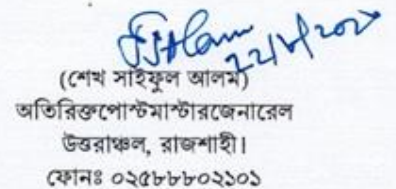 (শেখ সাইফুল আলম)
অতিরিক্তপোস্টমাস্টারজেনারেল
উত্তরাঞ্চল, রাজশাহী।
ফোনঃ ০২৫৮৮৮০২১০১